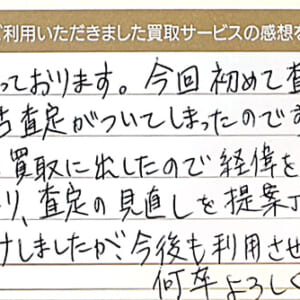 ご利用いただきました買取サービスの感想を
っております。今回初めて査
告査定がついてしまったのです
買取に出したので経緯を
り、査定の見直しを提案
けしましたが、今後も利用させ
何卒よろしく